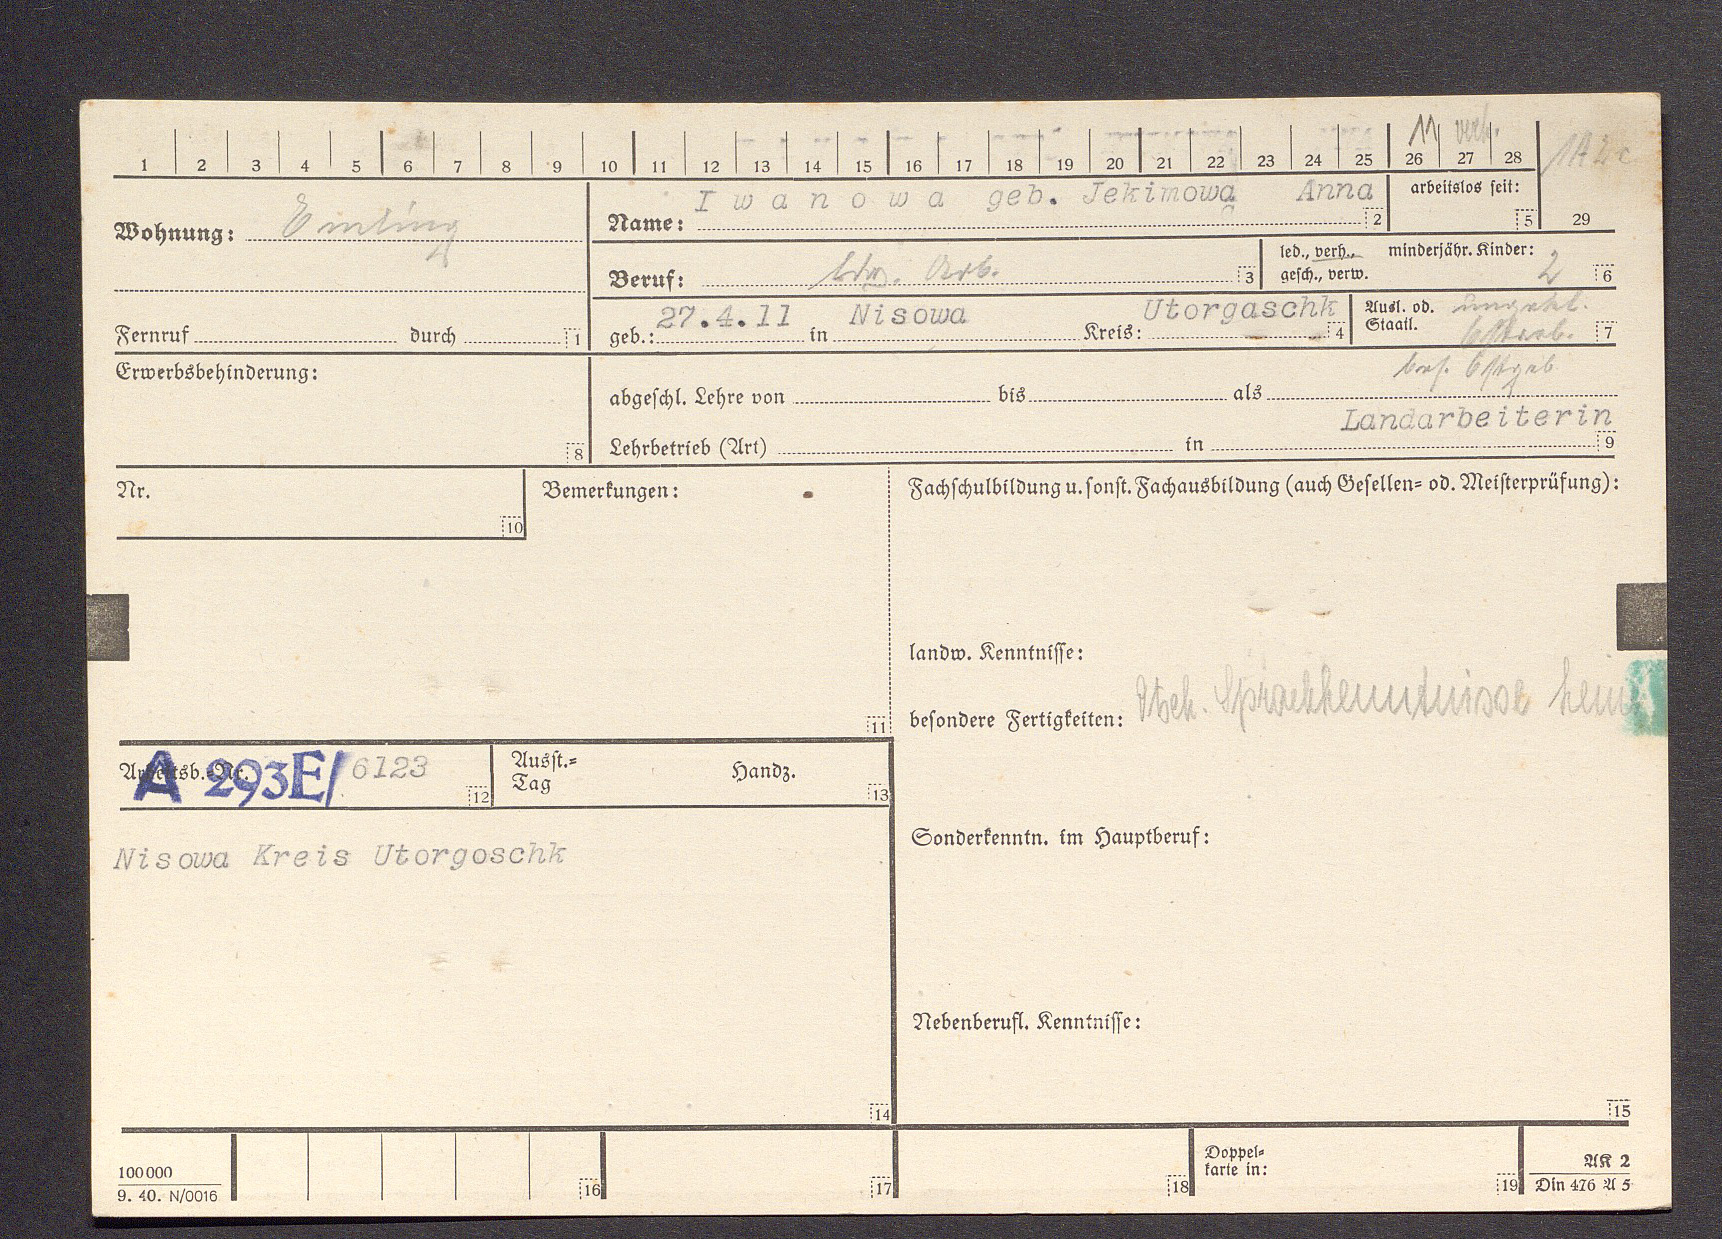 11 verh.
1 2 3 4 5 6 7 8 9 10 11 12 13 14 15 16 17 18 19 20 21 22 23 24 25 26 27 28
Wohnung: Emling
Name: Iwanowa geb. Jekimowa Anna 2
arbeitslos seit: 5
29
Beruf: ldw. Arb. 3
led., verh., minderjähr. Kinder:
gesch., verw. 2 6
Fernruf durch 1
geb.: 27.4.11 in Nisowa Kreis: Utorgaschk 4
Ausl. od. ungekl.
Staatl. Ostarb. 7
Erwerbsbehinderung: 8
bes. Ostgeb
abgeschl. Lehre von bis als
Landarbeiterin
Lehrbetrieb (Art) in 9
Nr. 10
Bemerkungen: 11
Fachschulbildung u. sonst. Fachausbildung (auch Gesellen= od. Meisterprüfung):
landw. Kenntnisse:
besondere Fertigkeiten: Dtsch. Sprachkenntnisse
Arbeitsb.=Nr. A 293E/ 6123 12
Ausst.=
Tag Handz. 13
Sonderkenntn. im Hauptberuf:
Nisowa Kreis Utorgoschk
Nebenberufl. Kenntnisse:
14
15
100000
9. 40. N/0016
16
17
18
Doppel=
karte in: 19
AK 2
Din 476 A 5